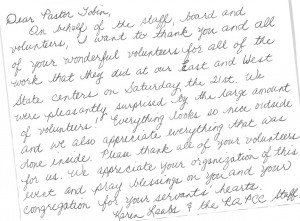 Dear Pastor Tobin,
On behalf of the staff, board and
volunteers, I want to thank you and all
of your wonderful volunteers for all of the
work that they did at our East and West
State centers on Saturday the 21st. We
were pleasantly surprised by the large amount
of volunteers! Everything looks so nice outside
and we also appreciate everything that was
done inside. Please thank all of your volunteers
for us. We appreciate your organization of this
event and pray blessings on you and your
congregation for your servants' hearts.
Karen & the RAPCC Staff